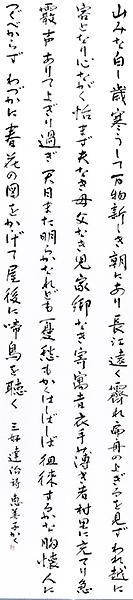 山みな白し歳寒うして万物新しき朝にあり長江遠く霽れ帰舟のよぎるを見ずわれ越に
客となり心ながく怡まず夫なき母父なき児家郷なき寄寓者衣手薄き者村里に充てり急
霰声ありてよぎり過ぎ天日また明らかなれども憂愁もかくはしばしば徂徠するかな胸懐人に
つぐべからずわづかに花の図をかかげて屋後に啼鳥を聴く 三好達治詩 恵美子かく